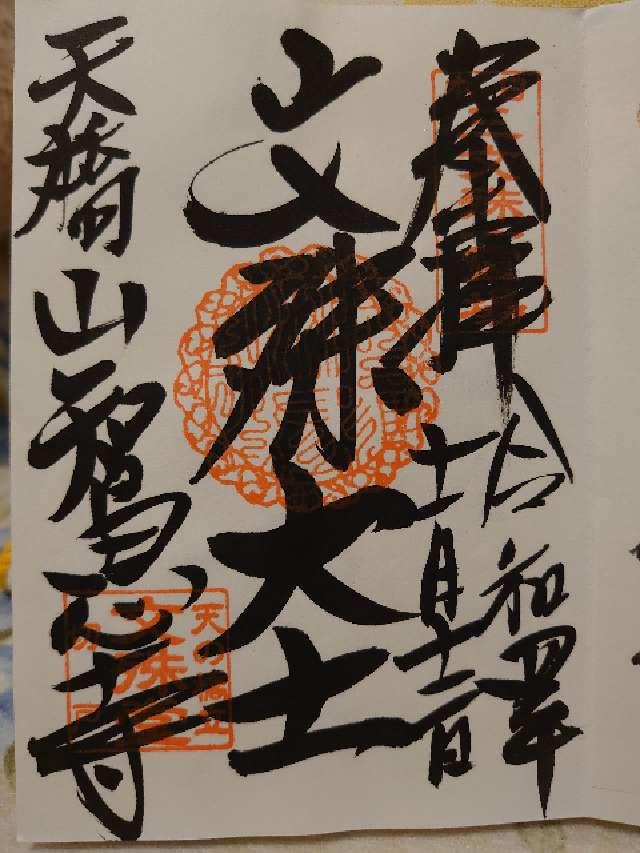 奉拝
令和四年
十一月十二日
文殊大士
天橋山智恩寺
天の橋立
文殊堂